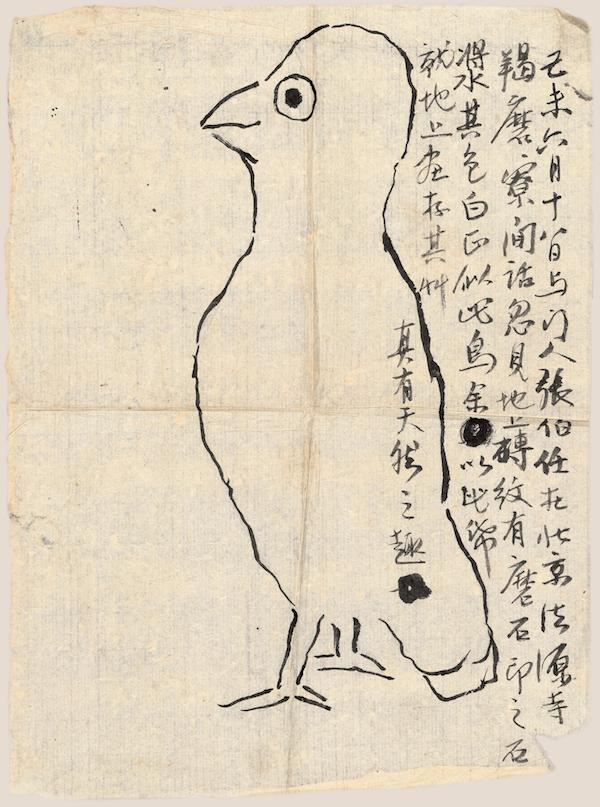 己未六月十八日与门人張伯任在北京法源寺
羯磨寮閒話忽見地上磚紋有磨石印之石
漿水其色白正似此鳥余以此紙
就地上画存其艸
真有天然之趣